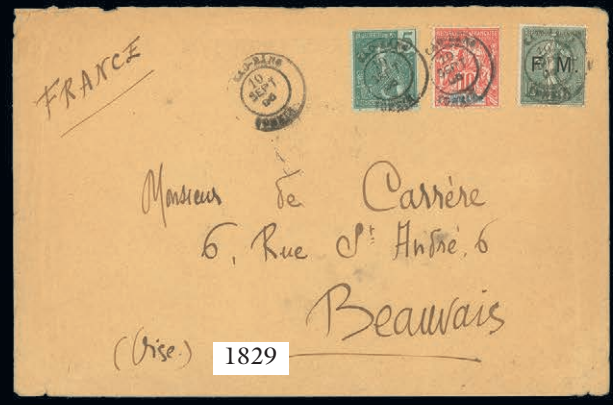 FRANCE
CAO-BANG
10
SEPT
TONKIN
5
10
F. M.
Monsieur de Carrère
6, Rue St André, 6
Beauvais
(Oise.)
1829